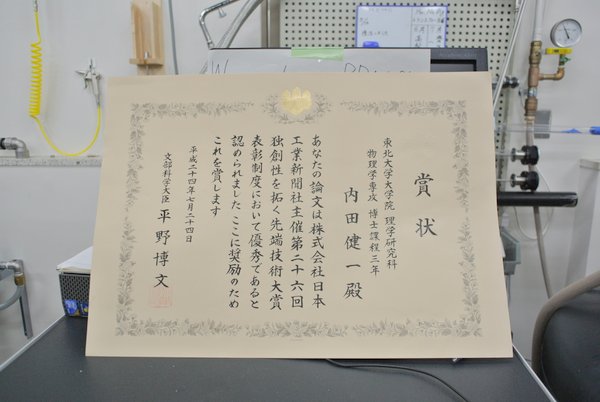 賞状
東北大学大学院 理学研究科
物理学専攻 博士課程三年
内田健一殿
あなたの論文は株式会社日本
工業新聞社主催第二十六回
独創性を拓く先端技術大賞
表彰制度において優秀であると
認められました ここに奨励のため
これを賞します
平成二十四年七月二十四日
文部科学大臣 平野博文